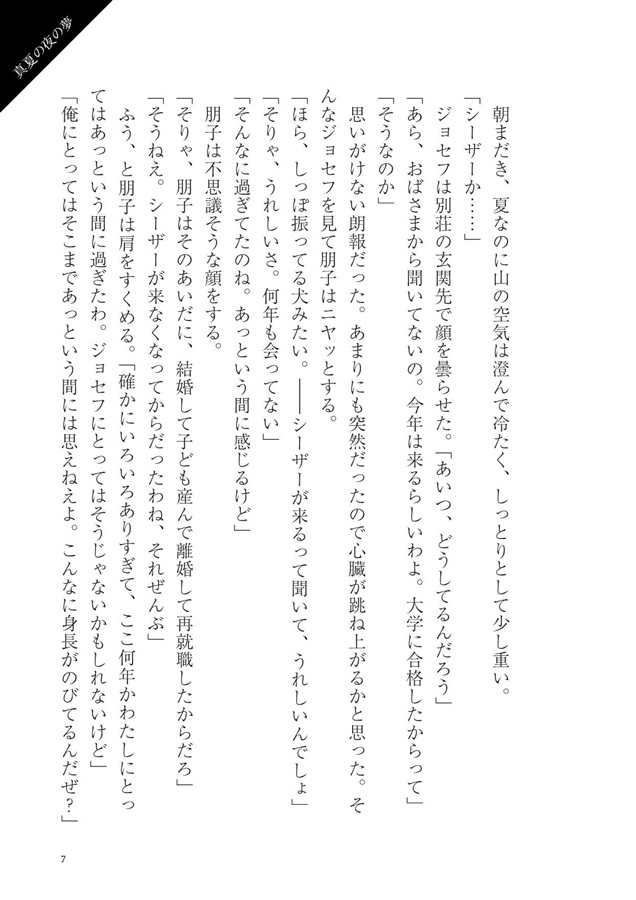 真夏の夜の夢
朝まだき、夏なのに山の空気は澄んで冷たく、しっとりとして少し重い。
「シーザーか……」
ジョセフは別荘の玄関先で顔を曇らせた。「あいつ、どうしてるんだろう」
「あら、おばさまから聞いてないの。今年は来るらしいわよ。大学に合格したからって」
「そうなのか」
思いがけない朗報だった。あまりにも突然だったので心臓が跳ね上がるかと思った。そ
んなジョセフを見て朋子はニヤッとする。
「ほら、しっぽ振ってる犬みたい。――シーザーが来るって聞いて、うれしいんでしょ」
「そりゃ、うれしいさ。何年も会ってない」
「そんなに過ぎてたのね。あっという間に感じるけど」
朋子は不思議そうな顔をする。
「そりゃ、朋子はそのあいだに、結婚して子ども産んで離婚して再就職したからだろ」
「そうねえ。シーザーが来なくなってからだったわね、それぜんぶ」
ふう、と朋子は肩をすくめる。「確かにいろいろありすぎて、ここ何年かわたしにとっ
てはあっという間に過ぎたわ。ジョセフにとってはそうじゃないかもしれないけど」
「俺にとってはそこまであっという間には思えねえよ。こんなに身長がのびてるんだぜ？」
7